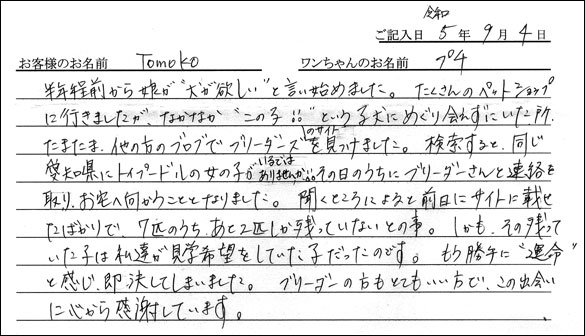 令和
ご記入日 5年 9月 4日
お客様のお名前 Tomoko ワンちゃんのお名前 プチ
半年程前から娘が“犬が欲しい”と言い始めました。たくさんのペットショップ
に行きましたが、なかなか“この子!!”という子犬にめぐり会えずにいた所、
たまたま、他の方のブログでブリーダーズのサイトを見つけました。検索すると、同じ
愛知県にトイプードルの女の子がいるではありませんか!!その日のうちにブリーダーさんと連絡を
取り、お宅へ向かうこととなりました。聞くところによると前日にサイトに載せ
たばかりで、7匹のうち、あと2匹しか残っていないとの事。しかも、その残って
いた子は私達が見学希望をしていた子だったのです。もう勝手に“運命”
と感じ、即決してしまいました。ブリーダーの方もとてもいい方で、この出会い
に心から感謝しています。